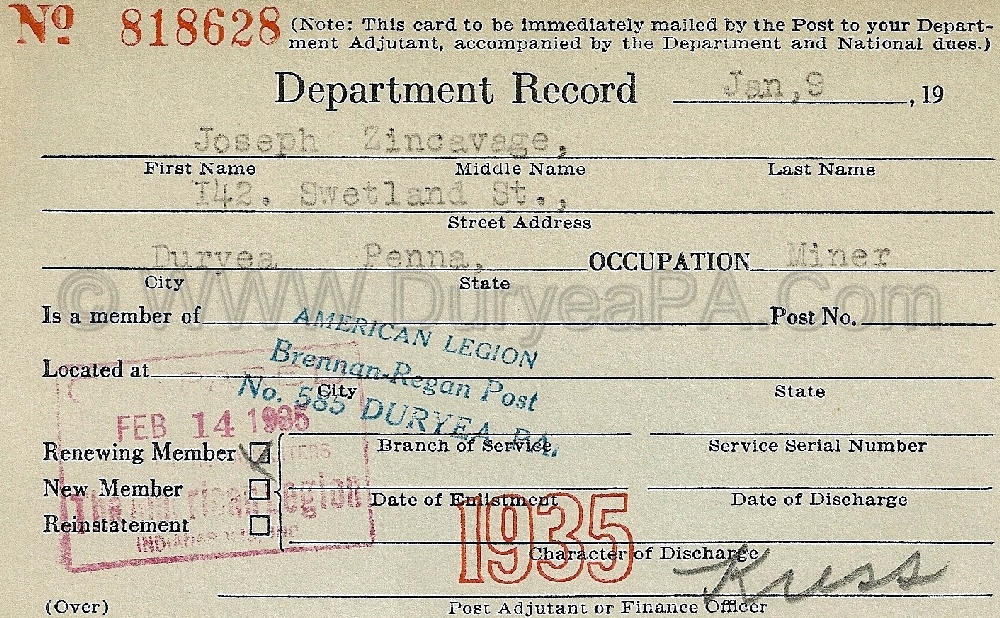 Nº 818628 (Note: This card to be immediately mailed by the Post to your Depart-
ment Adjutant, accompanied by the Department and National dues.)
Department Record Jan,9 , 19
Joseph Zincavage,
First Name Middle Name Last Name
142. Swetland St.,
Street Address
Duryea Penna, OCCUPATION Miner
City State
© WWW.DuryeaPA.Com
Is a member of Post No.
AMERICAN LEGION
Brennan-Regan Post
No. 585 DURYEA, PA.
Located at
City State
FEB 14 1935
Renewing Member Branch of Service Service Serial Number
New Member
The American Legion
Date of Enlistment Date of Discharge
Reinstatement
1935
Character of Discharge
Kress
(Over) Post Adjutant or Finance Officer